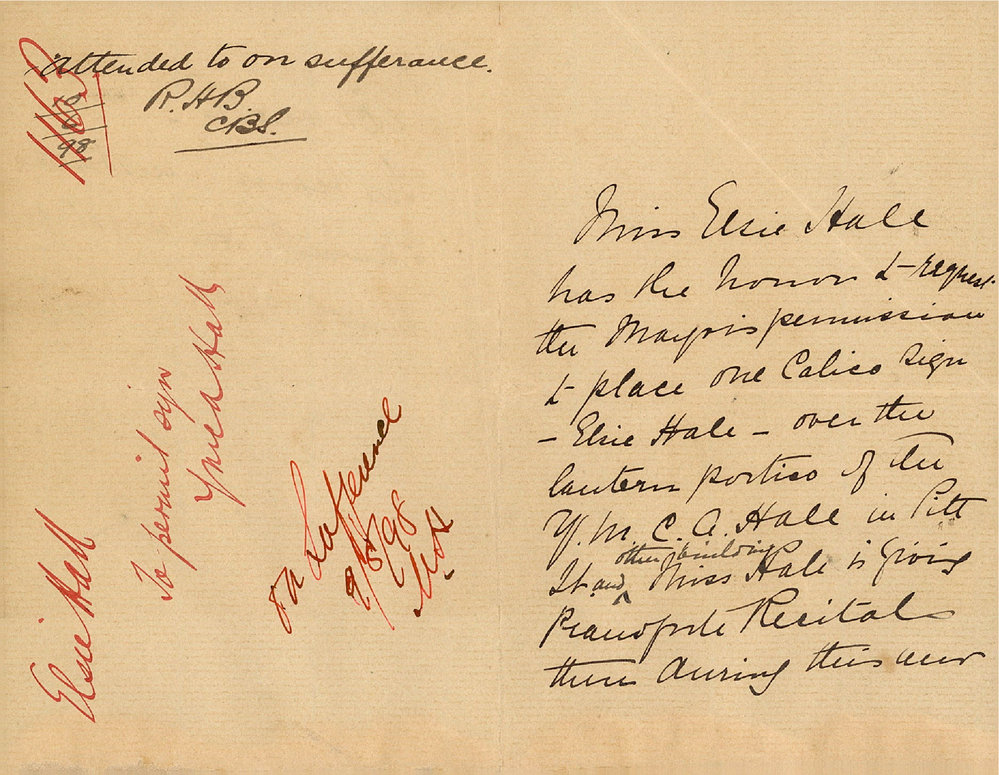 attended to on sufferance.
R.H.B.
CBS.
1163
98
Elsie Hall
To permit sign
Ymca Hall
On Sufference
9/8/98
Miss Elsie Hall
has the honor to request
the Mayor's permission
to place one Calico sign
- Elsie Hall - over the
lantern portico of the
Y.M.C.A. Hall in Pitt
other buildings
St. and Miss Hall is giving
Pianoforte Recitals
there during this